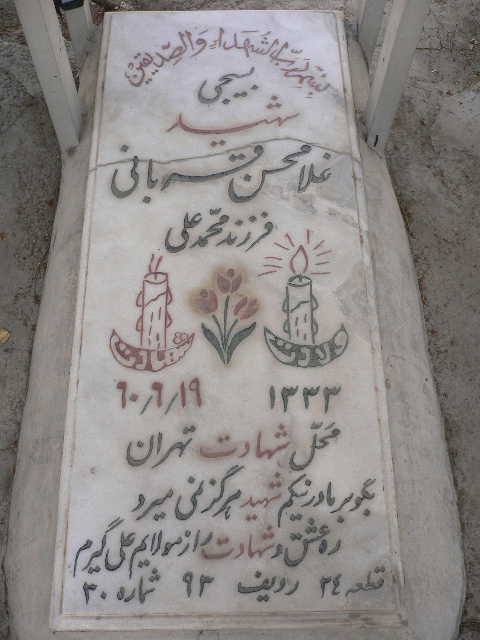 بسم رب الشهداء والصدیقین
بسیجی
شهید
غلامحسن قربانی
فرزند محمدعلی
شهادت ولادت
۶۰/۶/۱۹ ۱۳۳۳
محل شهادت تهران
بگو بر مادر نیکم شهید هرگز نمی میرد
ره عشق و شهادت را از مولایم علی گیرم
قطعه ۲۴ ردیف ۹۳ شماره ۳۰